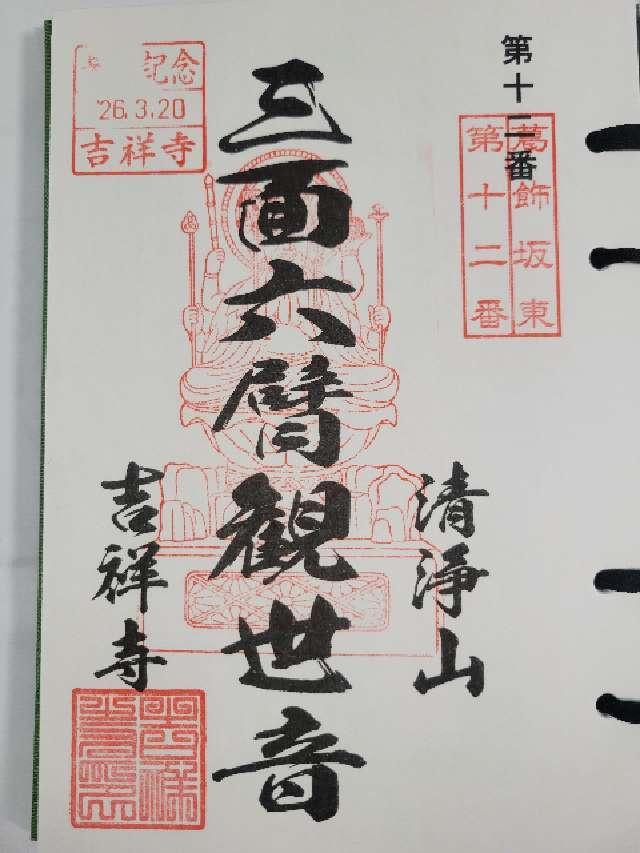 第十二番
葛飾坂東
第十二番
清浄山
三面六臂観世音
記念
'26.3.20
吉祥寺
吉祥寺